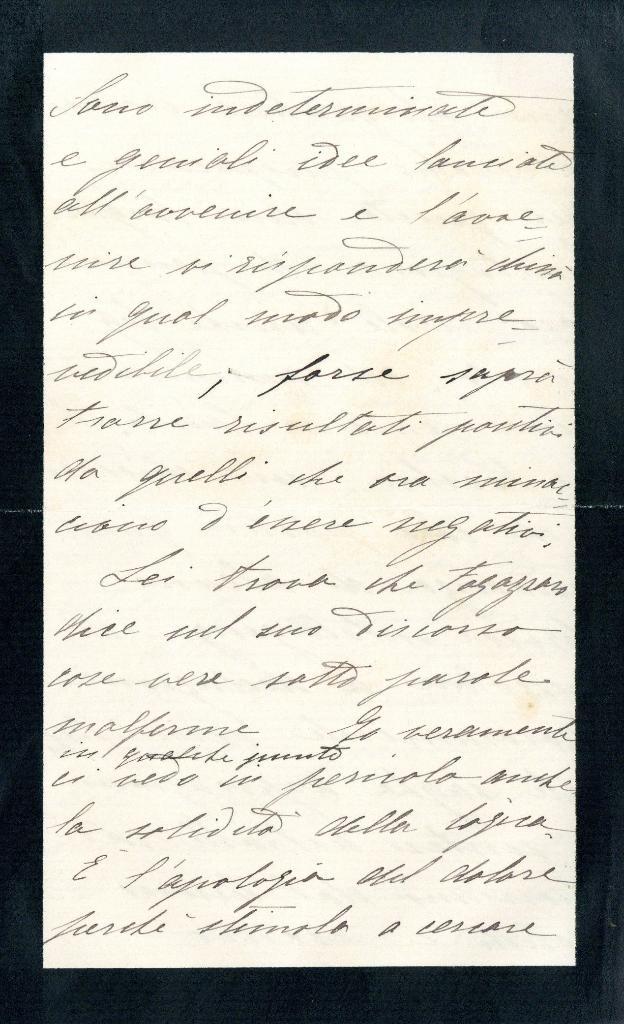 Sono indeterminate
e geniali idee lanciate
all'avvenire e l'avve=
nire vi risponderà
in qual modo impre=
vedibile; forse saprà
trarre risultati positivi
da quelli che ora minac=
ciano d'essere negativi.
Lei trova che Fogazzaro
dice nel suo discorso
cose vere sotto parole
malferme Io veramente
in qualche punto
ci vedo in pericolo anche
la solidità della logica.
È l'apologia del dolore
perché stimola a cercare